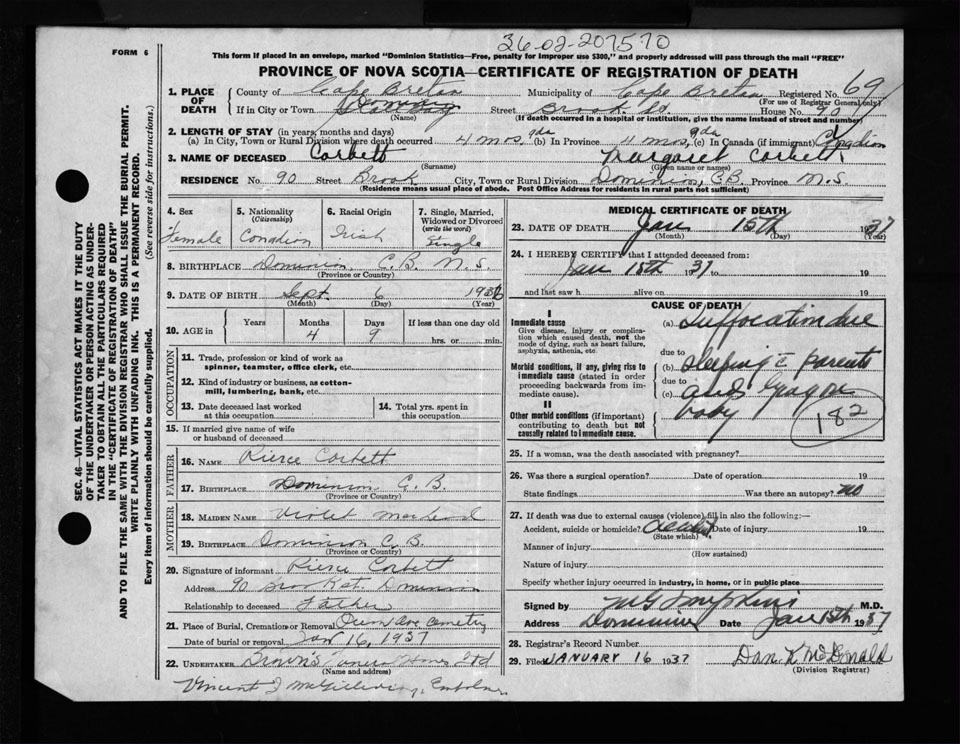 36-02-207570
FORM 6
This form if placed in an envelope, marked "Dominion Statistics—Free, penalty for improper use $300," and properly addressed will pass through the mail "FREE"
PROVINCE OF NOVA SCOTIA—CERTIFICATE OF REGISTRATION OF DEATH
1. PLACE OF DEATH
County of Cape Breton Municipality of Cape Breton Registered No. 69
(For use of Registrar General only)
If in City or Town Dominion Street Brook St. House No. 90
(Name) (If death occurred in a hospital or institution, give the name instead of street and number)
2. LENGTH OF STAY (in years, months and days)
(a) In City, Town or Rural Division where death occurred 4 mos. 9da (b) In Province 4 mos. 9da (c) In Canada (if immigrant) Canadian
3. NAME OF DECEASED Corbett Margaret Corbett
(Surname) (Given name or names)
RESIDENCE No. 90 Street Brook City, Town or Rural Division Dominion, C.B. Province N.S.
(Residence means usual place of abode. Post Office Address for residents in rural parts not sufficient)
SEC. 46—VITAL STATISTICS ACT MAKES IT THE DUTY
OF THE UNDERTAKER OR PERSON ACTING AS UNDER-
TAKER TO OBTAIN ALL THE PARTICULARS REQUIRED
IN THE "CERTIFICATE OF REGISTRATION OF DEATH"
AND TO FILE THE SAME WITH THE DIVISION REGISTRAR WHO SHALL ISSUE THE BURIAL PERMIT.
WRITE PLAINLY WITH UNFADING INK. THIS IS A PERMANENT RECORD.
Every item of information should be carefully supplied. (See reverse side for instructions.)
4. Sex
Female
5. Nationality
(Citizenship)
Canadian
6. Racial Origin
Irish
7. Single, Married, Widowed or Divorced
(write the word)
Single
8. BIRTHPLACE Dominion, C.B. N.S.
(Province or Country)
9. DATE OF BIRTH Sept. 6 1936
(Month) (Day) (Year)
10. AGE in
Years Months Days If less than one day old
4 9 hrs. or min.
OCCUPATION
11. Trade, profession or kind of work as
spinner, teamster, office clerk, etc.
12. Kind of industry or business, as cotton-
mill, lumbering, bank, etc.
13. Date deceased last worked
at this occupation
14. Total yrs. spent in
this occupation
15. If married give name of wife
or husband of deceased
FATHER
16. NAME Pierce Corbett
17. BIRTHPLACE Dominion C.B.
(Province or Country)
MOTHER
18. MAIDEN NAME Violet
19. BIRTHPLACE Dominion C.B.
(Province or Country)
20. Signature of informant Pierce Corbett
Address 90 Brook st. Dominion
Relationship to deceased Father
21. Place of Burial, Cremation or Removal Ave Cemetery
Date of burial or removal Jan 16, 1937
22. UNDERTAKER Brown's Funeral Home Ltd
(Name and address)
Vincent J
MEDICAL CERTIFICATE OF DEATH
23. DATE OF DEATH Jan 15th 1937
(Month) (Day) (Year)
24. I HEREBY CERTIFY that I attended deceased from:
Jan 15th 1937 to 19
and last saw h alive on 19
CAUSE OF DEATH
I
Immediate cause
Give disease, injury or complica-
tion which caused death, not the
mode of dying, such as heart failure,
asphyxia, asthenia, etc.
Morbid conditions, if any, giving rise to
immediate cause (stated in order
proceeding backwards from im-
mediate cause).
II
Other morbid conditions (if important)
contributing to death but not
causally related to immediate cause.
(a) Suffocation due
due to
(b) sleeping c̄ parents
due to
(c) and
baby
182
25. If a woman, was the death associated with pregnancy?
26. Was there a surgical operation? Date of operation 19
State findings Was there an autopsy? no
27. If death was due to external causes (violence) fill in also the following:—
Accident, suicide or homicide? Date of injury 19
(State which)
Manner of injury
(How sustained)
Nature of injury
Specify whether injury occurred in industry, in home, or in public place
Signed by M G Tompkins M.D.
Address Dominion Date Jan 15th 1937
28. Registrar's Record Number
29. Filed JANUARY 16 1937 Dan. K McDonald
(Division Registrar)